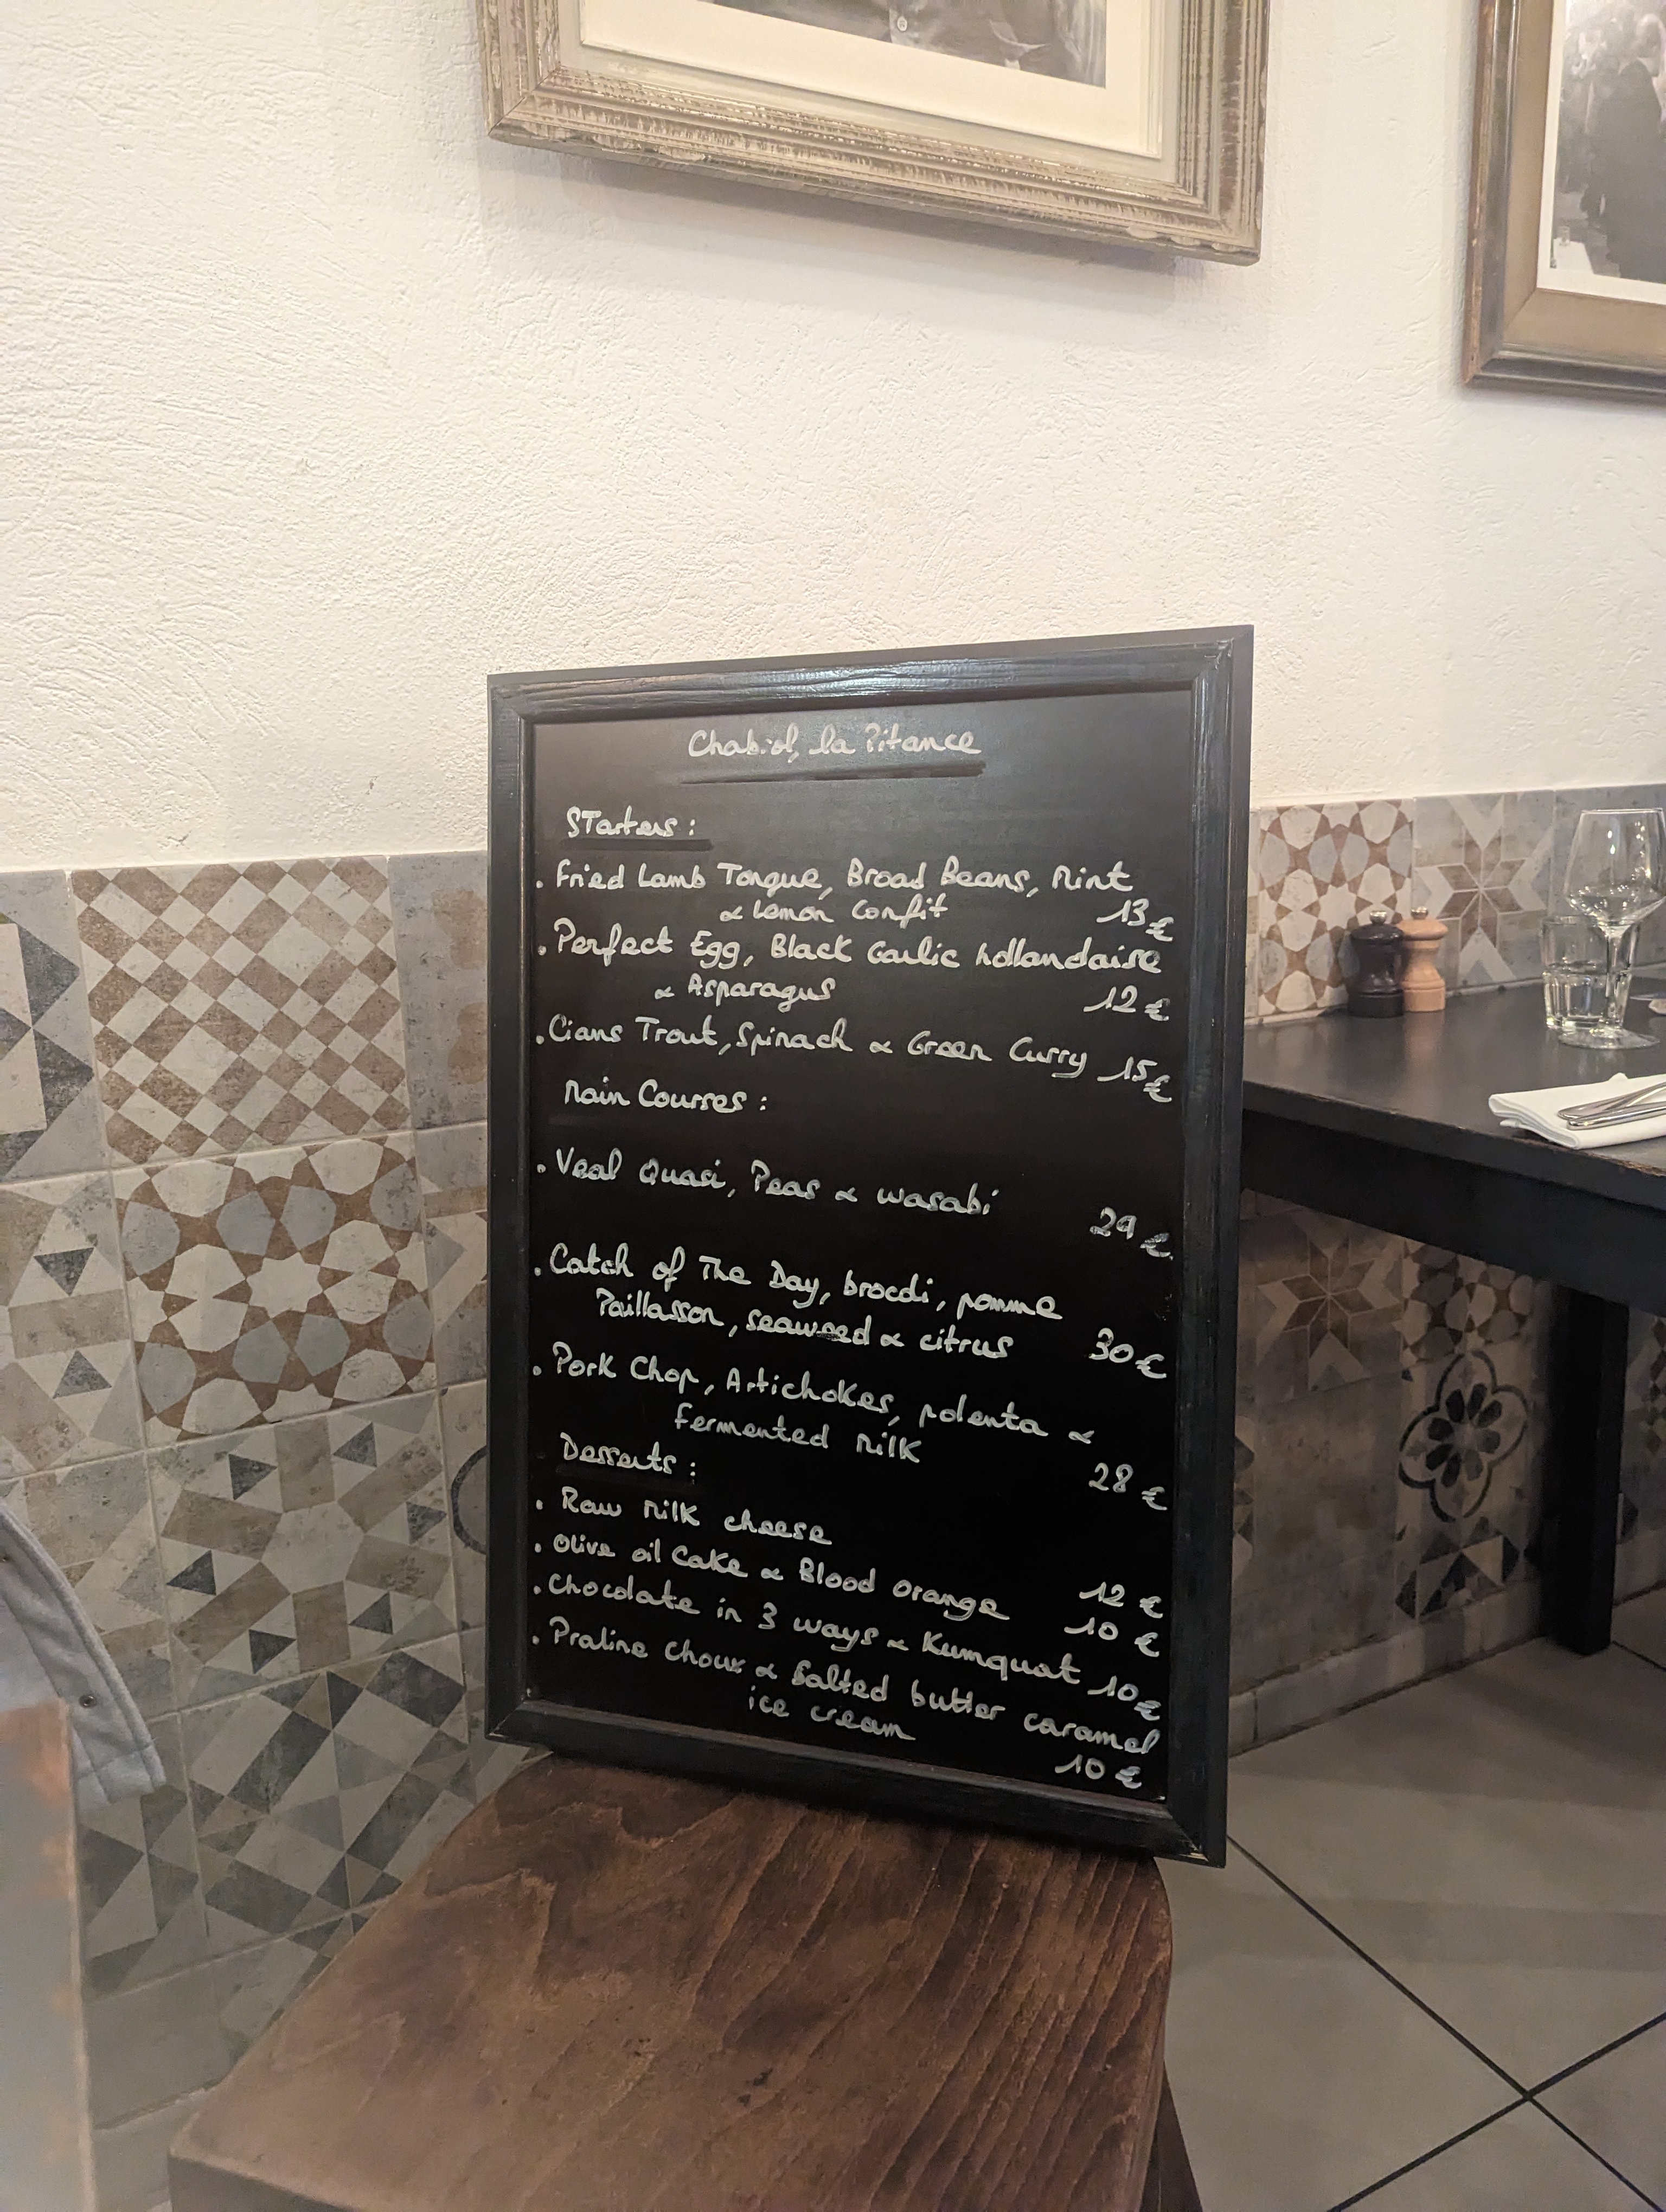 Chabiol, la Pitance
STarters :
. Fried Lamb Tongue, Broad Beans, Mint
& Lemon Confit 13€
. Perfect Egg, Black Garlic hollandaise
& Asparagus 12€
. Cians Trout, Spinach & Green Curry 15€
Main Courses :
. Veal Quasi, Peas & wasabi 29€
. Catch of The Day, brocoli, pomme
Paillasson, seaweed & citrus 30€
. Pork Chop, Artichokes, polenta &
fermented Milk 28€
Desserts :
. Raw Milk cheese 12€
. Olive oil Cake & Blood orange 10€
. Chocolate in 3 ways & Kumquat 10€
. Praline choux & Salted butter caramel
ice cream 10€